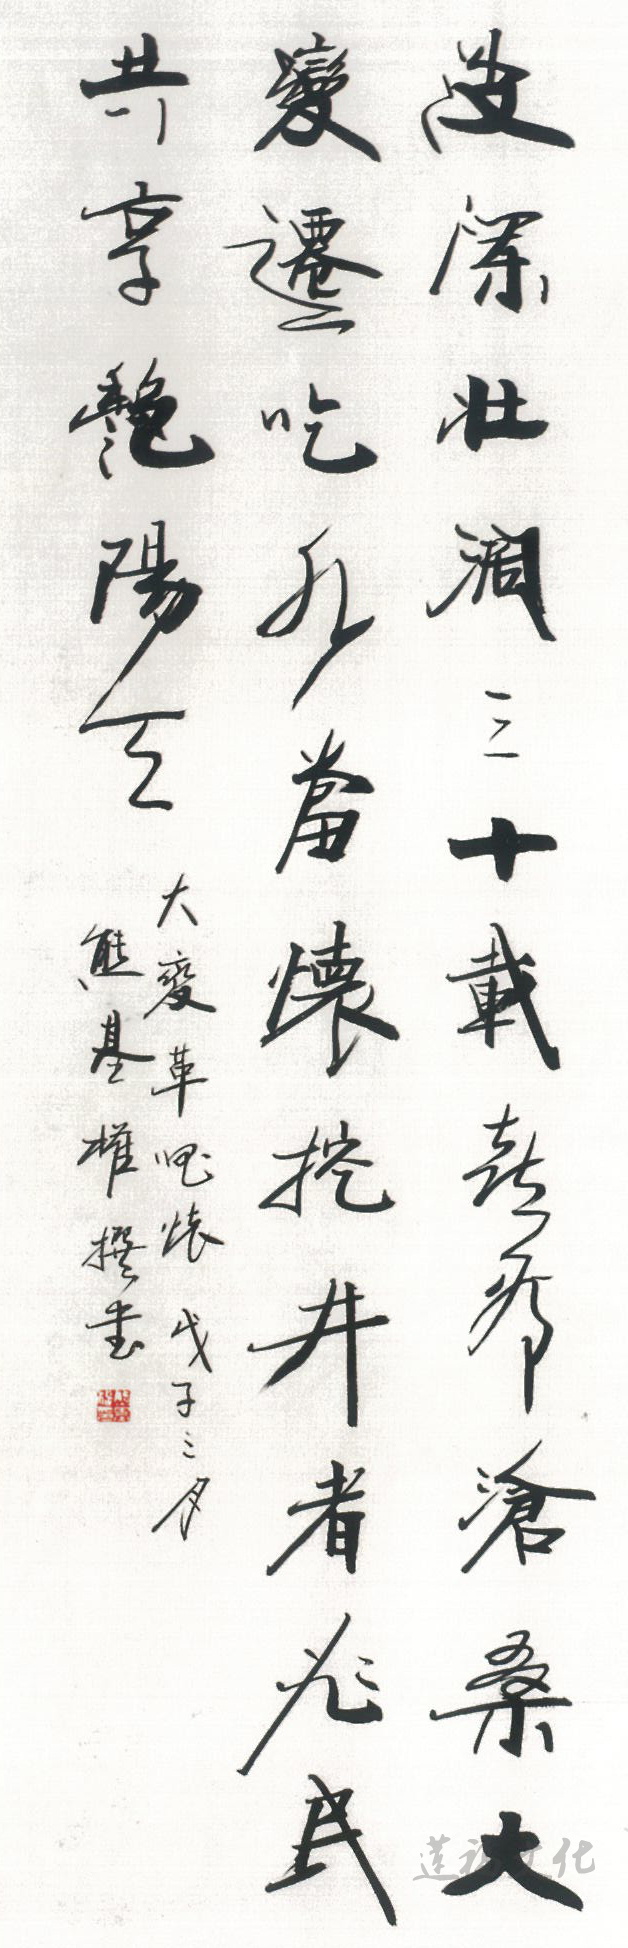 波瀾壯闊三十載喜看滄桑大
變遷吃水當懷挖井者兆民
共享艷陽天
大變革咏懷 戊子三月
熊基權撰書
文化